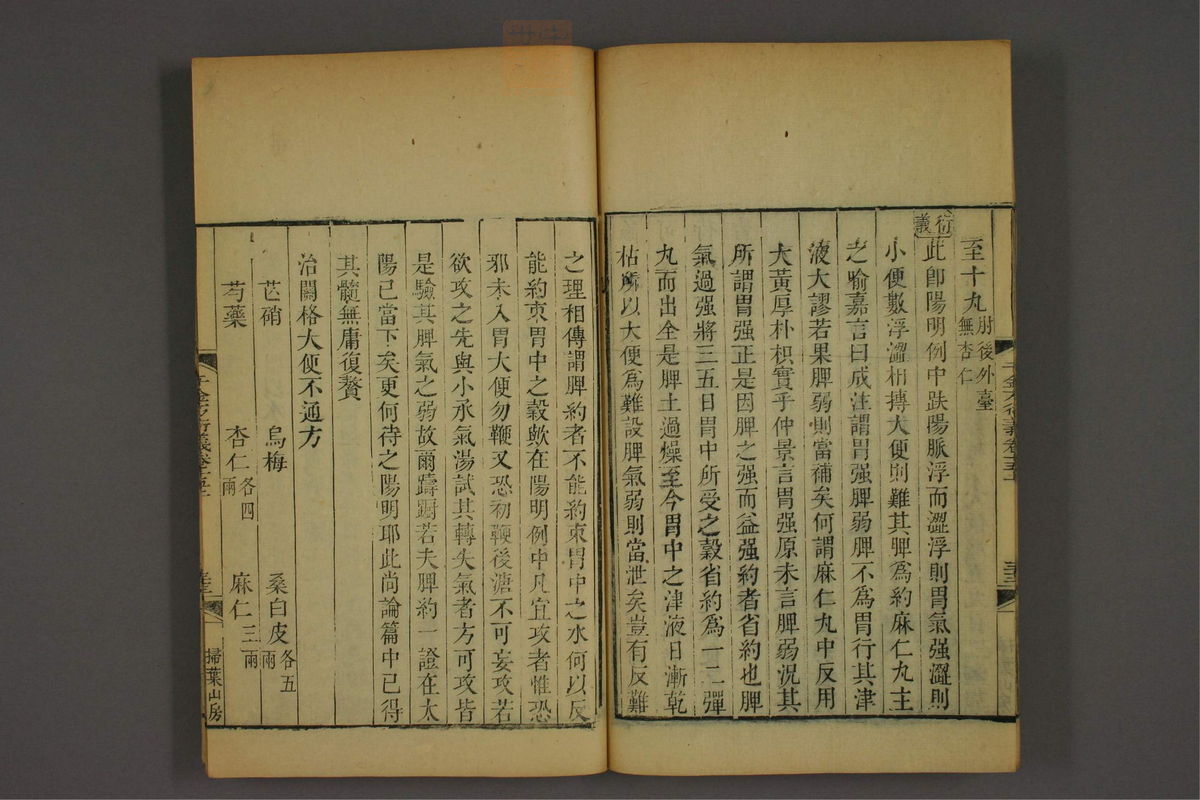 至十九肘後外臺無杏仁
衍義
此卽陽明例中趺陽脈浮而澀浮則胃氣强澀則
小便數浮澀相摶大便則難其脾爲約麻仁丸主
之喻嘉言曰成注謂胃强脾弱脾不爲胃行其津
液大謬若果脾弱則當補矣何謂麻仁丸中反用
大黃厚朴枳實乎仲景言胃强原未言脾弱況其
所謂胃强正是因脾之强而益强約者省約也脾
氣過强將三五日胃中所受之穀省約爲一二彈
丸而出全是脾土過燥至令胃中之津液日漸乾
枯所以大便爲難設脾氣弱則當泄矣豈有反難
之理相傳謂脾約者不能約束胃中之水何以反
能約束胃中之穀歟在陽明例中凡宜攻者惟恐
邪未入胃大便勿鞕又恐初鞕後溏不可妄攻若
欲攻之先與小承氣湯試其轉失氣者方可攻皆
是驗其脾氣之弱故爾躊躇若夫脾約一證在太
陽已當下矣更何待之陽明耶此尚論篇中已得
其髓無庸復贅
治關格大便不通方
芒硝 烏梅 桑白皮各五兩
芍藥 杏仁各四兩 麻仁三兩
掃葉山房